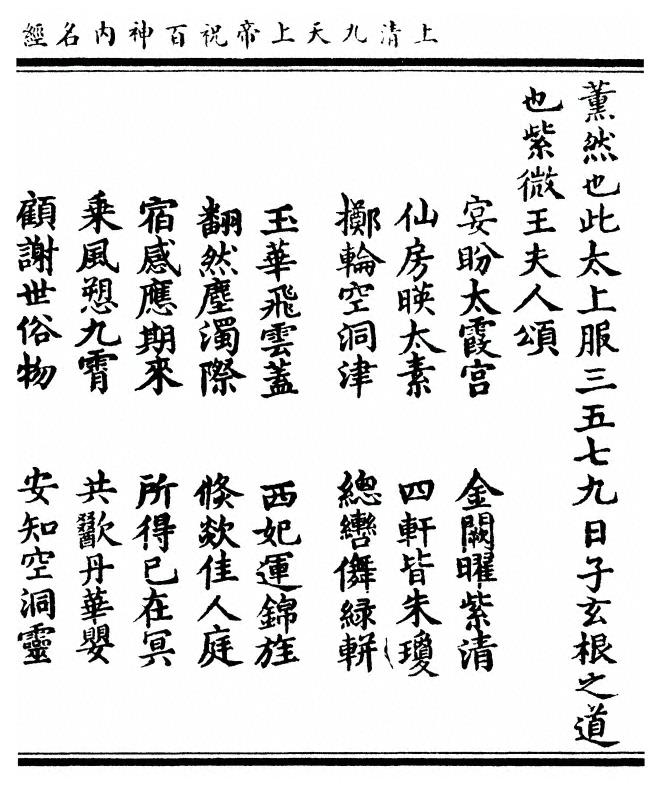 上清九天上帝祝百神內名經
薰然也此太上服三五七九日子玄根之道
也紫微王夫人頌
宴盼太霞宮　金闕曜紫清
仙房暎太素　四軒皆朱瓊
擲輪空洞津　總轡儛綠軿
玉華飛雲蓋　西妃運錦旌
翻然塵濁際　倏欻佳人庭
宿感應期來　所得已在冥
乘風愬九霄　共丹華嬰
顧謝世俗物　安知空洞靈